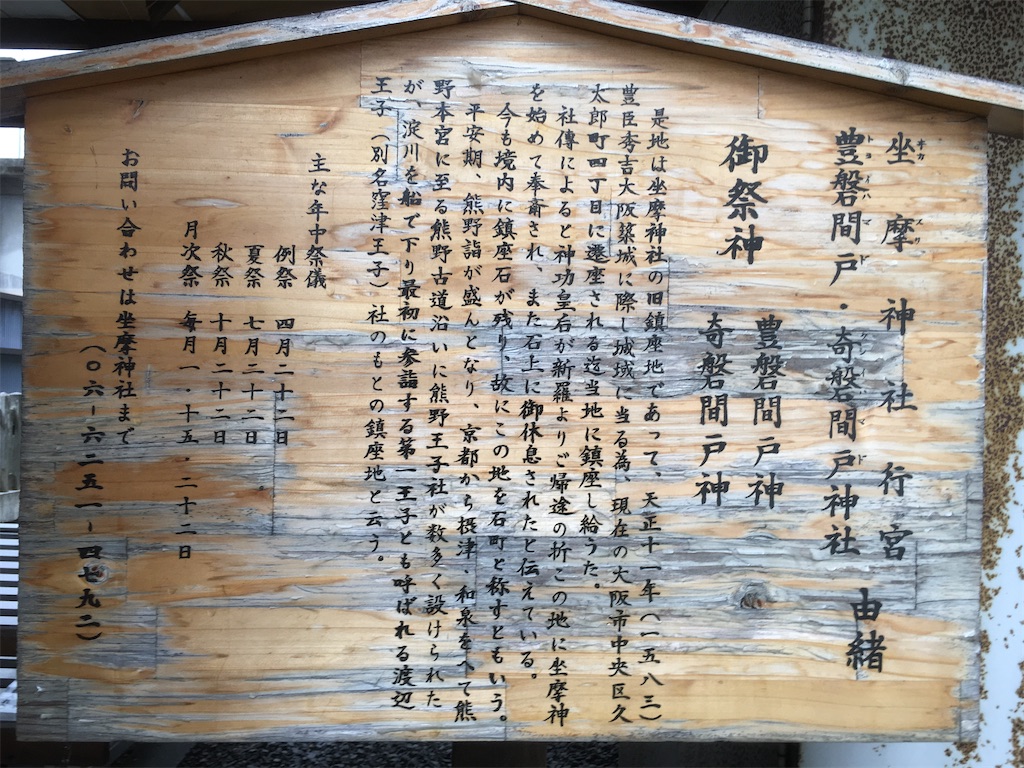 坐摩神社行宮
豊磐間戸・奇磐間戸神社 由緒
御祭神 豊磐間戸神
奇磐間戸神
是地は坐摩神社の旧鎮座地であって、天正十一年(一五八三)
豊臣秀吉大阪築城に際し城域に当る為、現在の大阪市中央区久
太郎町四丁目に遷座される迄当地に鎮座し給うた。
社傳によると神功皇后が新羅よりご帰途の折この地に坐摩神
を始めて奉斎され、また石上に御休息されたと伝えている。
今も境内に鎮座石が残り、故にこの地を石町と称すともいう。
平安期、熊野詣が盛んとなり、京都から摂津、和泉をへて熊
野本宮に至る熊野古道沿いに熊野王子社が数多く設けられた
が、淀川を船で下り最初に参詣する第一王子とも呼ばれる渡辺
王子(別名窪津王子)社のもとの鎮座地と云う。
主な年中祭儀
例祭 四月二十二日
夏祭 七月二十二日
秋祭 十月二十二日
月次祭 毎月一・十五・二十二日
お問い合わせは坐摩神社まで
(〇六-六二五一-四七九二)